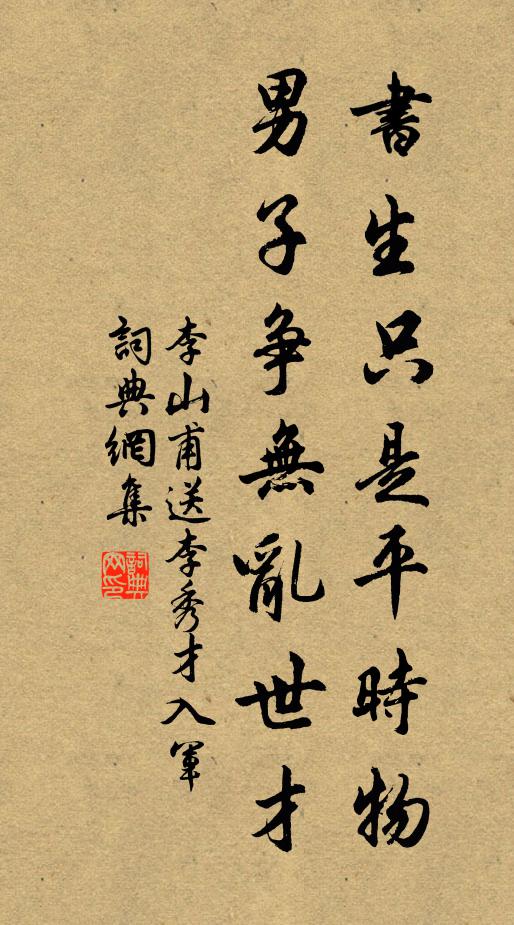 書生只是平時物
男子爭無亂世才
李山甫送李秀才入軍
詞典網集
詞典網印